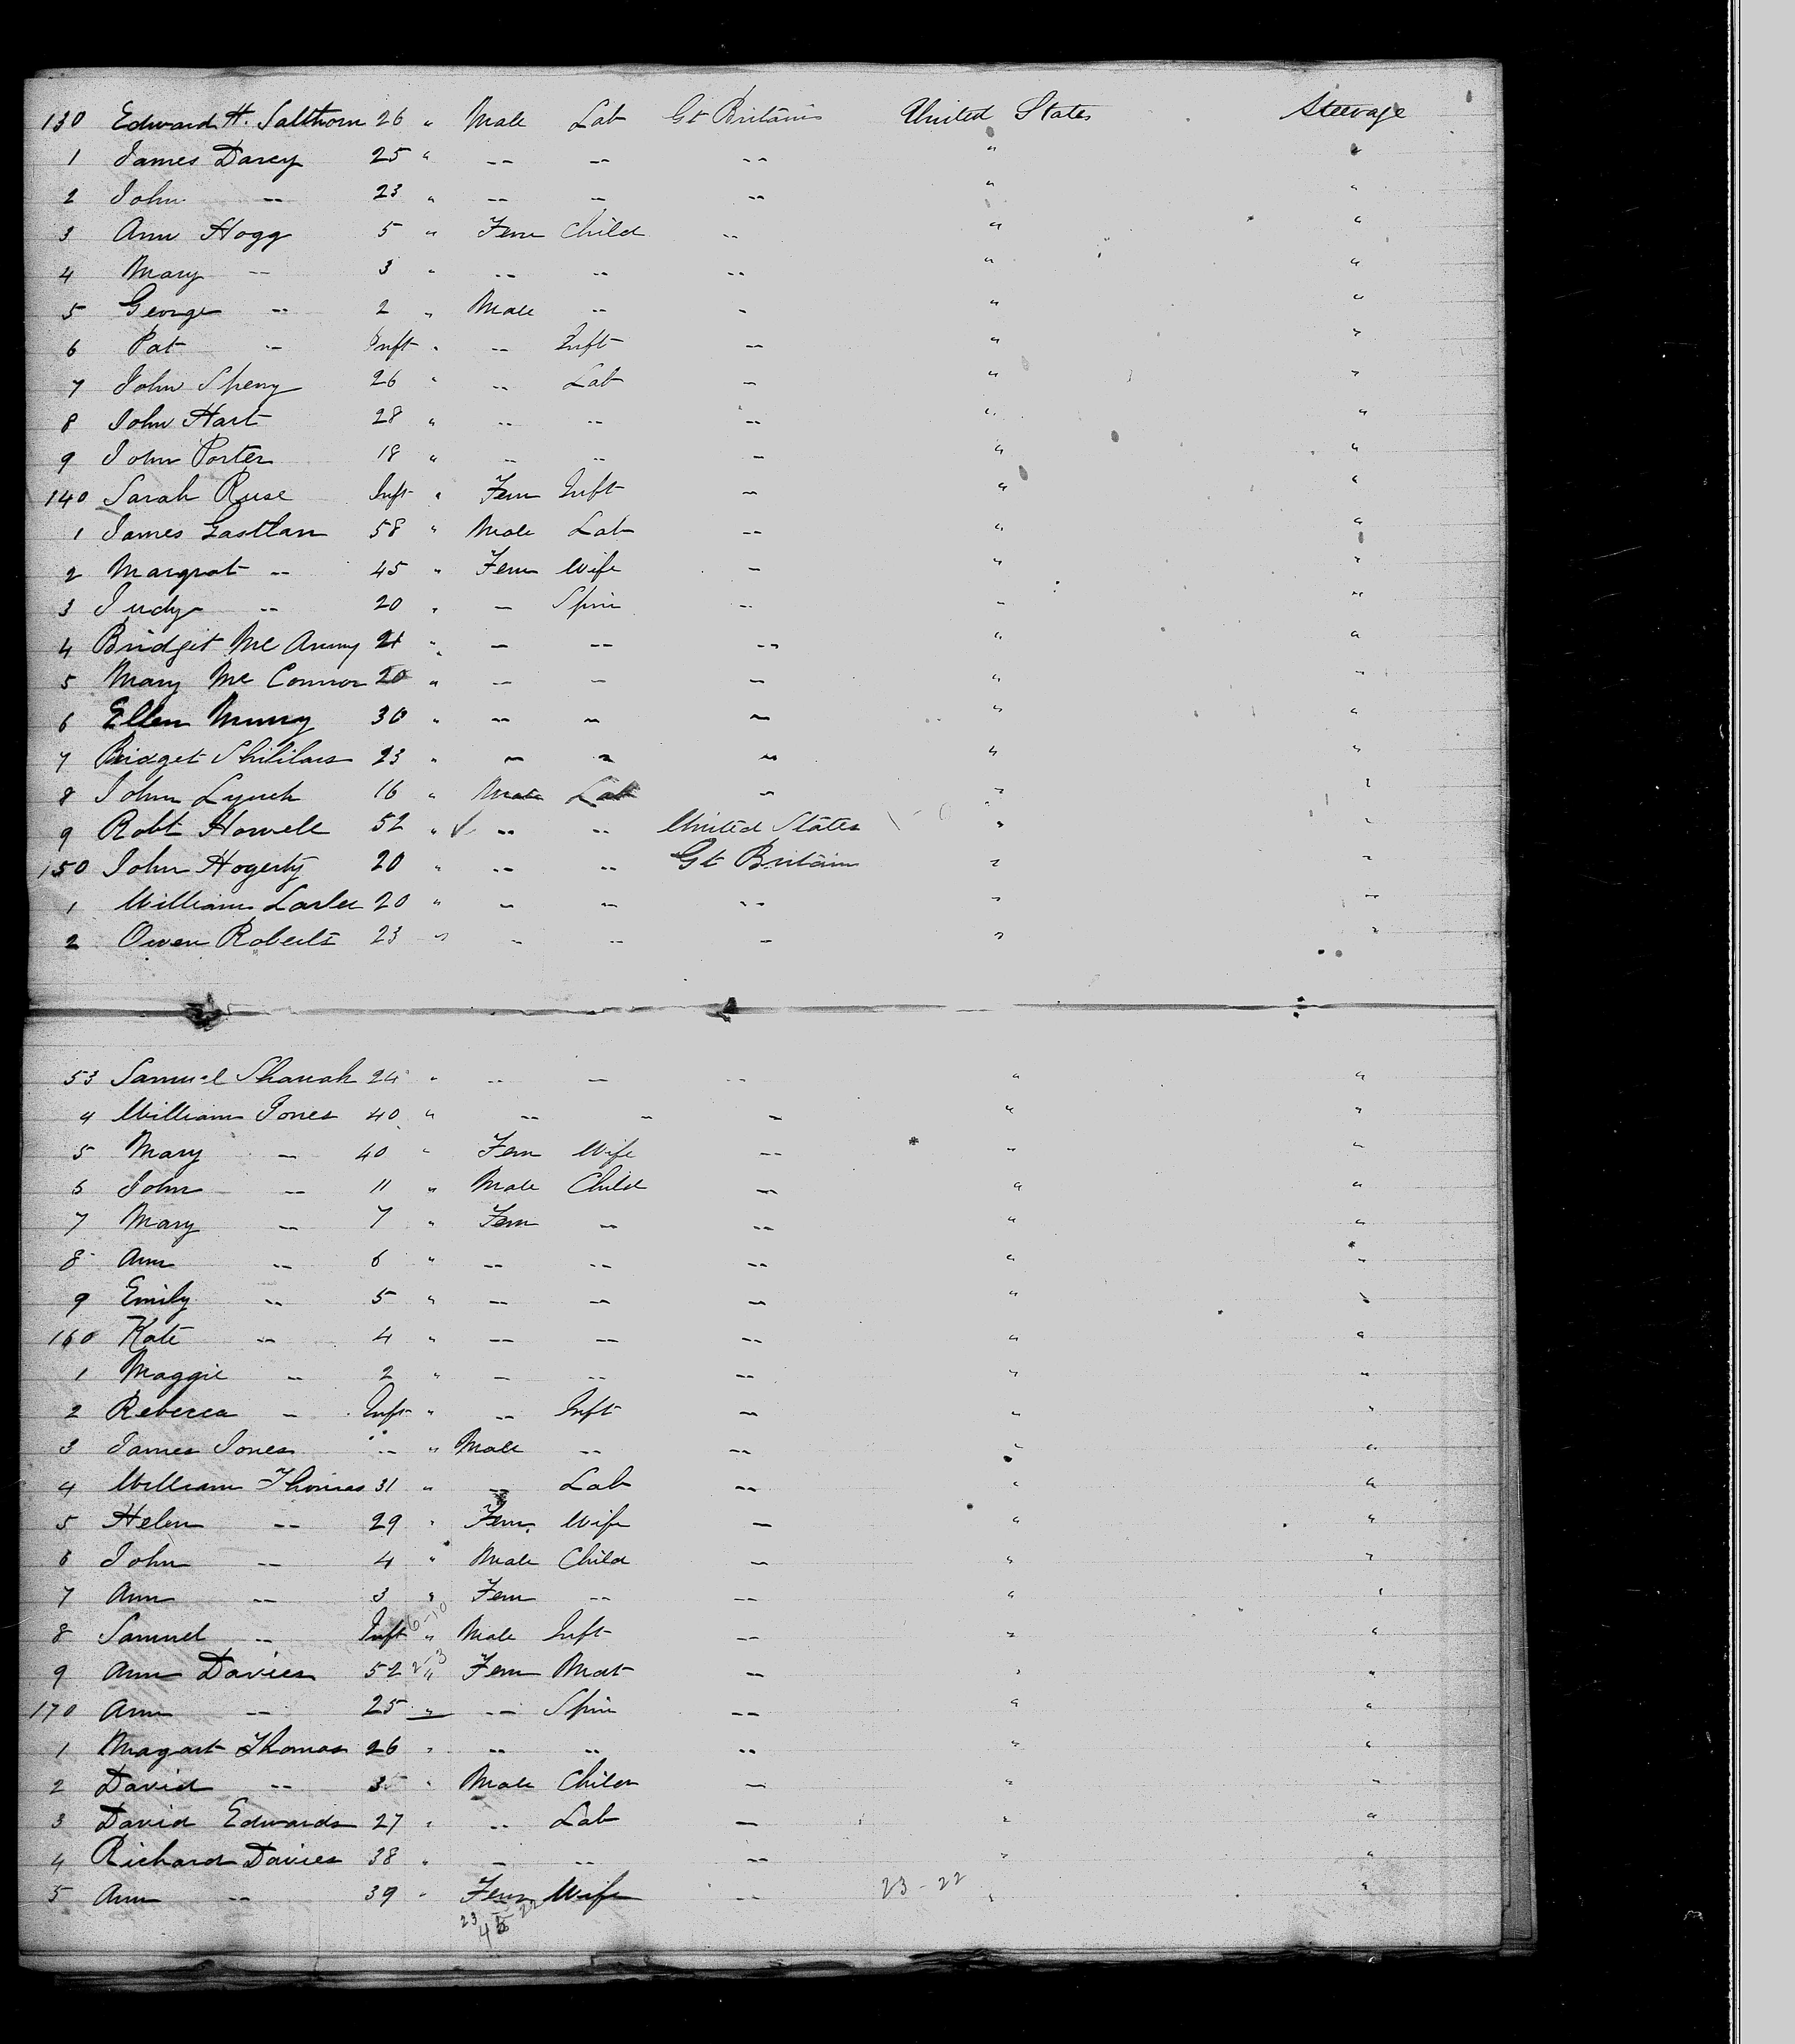 130 Edward H. Salthorn 26 " Male Lab Gt Britain United States Steerage
1 James Darcy 25 " -- -- -- " "
2 John -- 23 " -- -- -- " "
3 Ann Hogg 5 " Fem Child -- " "
4 Mary -- 3 " -- -- -- " "
5 George -- 2 " Male -- - " "
6 Pat -- Inft " -- Inft -- " "
7 John 26 " -- Lab -- " "
8 John Hart 28 " -- -- -- " "
9 John Porter 18 " -- -- -- " "
140 Sarah Ruse Inft " Fem Inft -- " "
1 James Gastlan 58 " Male Lab -- " "
2 Margrat -- 45 " Fem Wife -- " "
3 Judy -- 20 " -- Spin -- " "
4 Bridget Mc 21 " -- -- -- " "
5 Mary Mc Connor 20 " -- -- -- " "
6 Ellen 30 " -- -- -- " "
7 Bridget 23 " -- -- -- " "
8 John Lynch 16 " Male Lab -- " "
9 Robt Howell 52 " ✓ -- -- United States " "
150 John Hogerty 20 " -- -- Gt Britain " "
1 William 20 " -- -- -- " "
2 Owen Roberts 23 " -- -- -- " "
53 Samuel 24 " -- -- -- " "
4 William Jones 40 " -- -- -- " "
5 Mary -- 40 " Fem Wife -- " "
6 John -- 11 " Male Child -- " "
7 Mary -- 7 " Fem -- -- " "
8 Ann -- 6 " -- -- -- " "
9 Emily -- 5 " -- -- -- " "
160 Kate -- 4 " -- -- -- " "
1 Maggie -- 2 " -- -- -- " "
2 Rebecca -- Inft " -- Inft -- " "
3 James Jones -- " Male -- -- " "
4 William Thomas 31 " -- Lab -- " "
5 Helen -- 29 " Fem Wife -- " "
6 John -- 4 " Male Child -- " "
7 Ann -- 3 " Fem -- -- " "
8 Samuel -- Inft " Male Inft -- " "
9 Ann Davies 52 " Fem Mat -- " "
170 Ann -- 25 " -- Spin -- " "
1 Magart Thomas 26 " -- -- -- " "
2 David -- " Male Child -- " "
3 David Edwards 27 " -- Lab -- " "
4 Richard Davies 38 " -- -- -- " "
5 Ann -- 39 " Fem Wife -- 23-22 " "
23 22
45